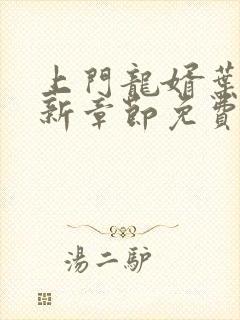 上門龍婿葉
新章節免費
湯二驴